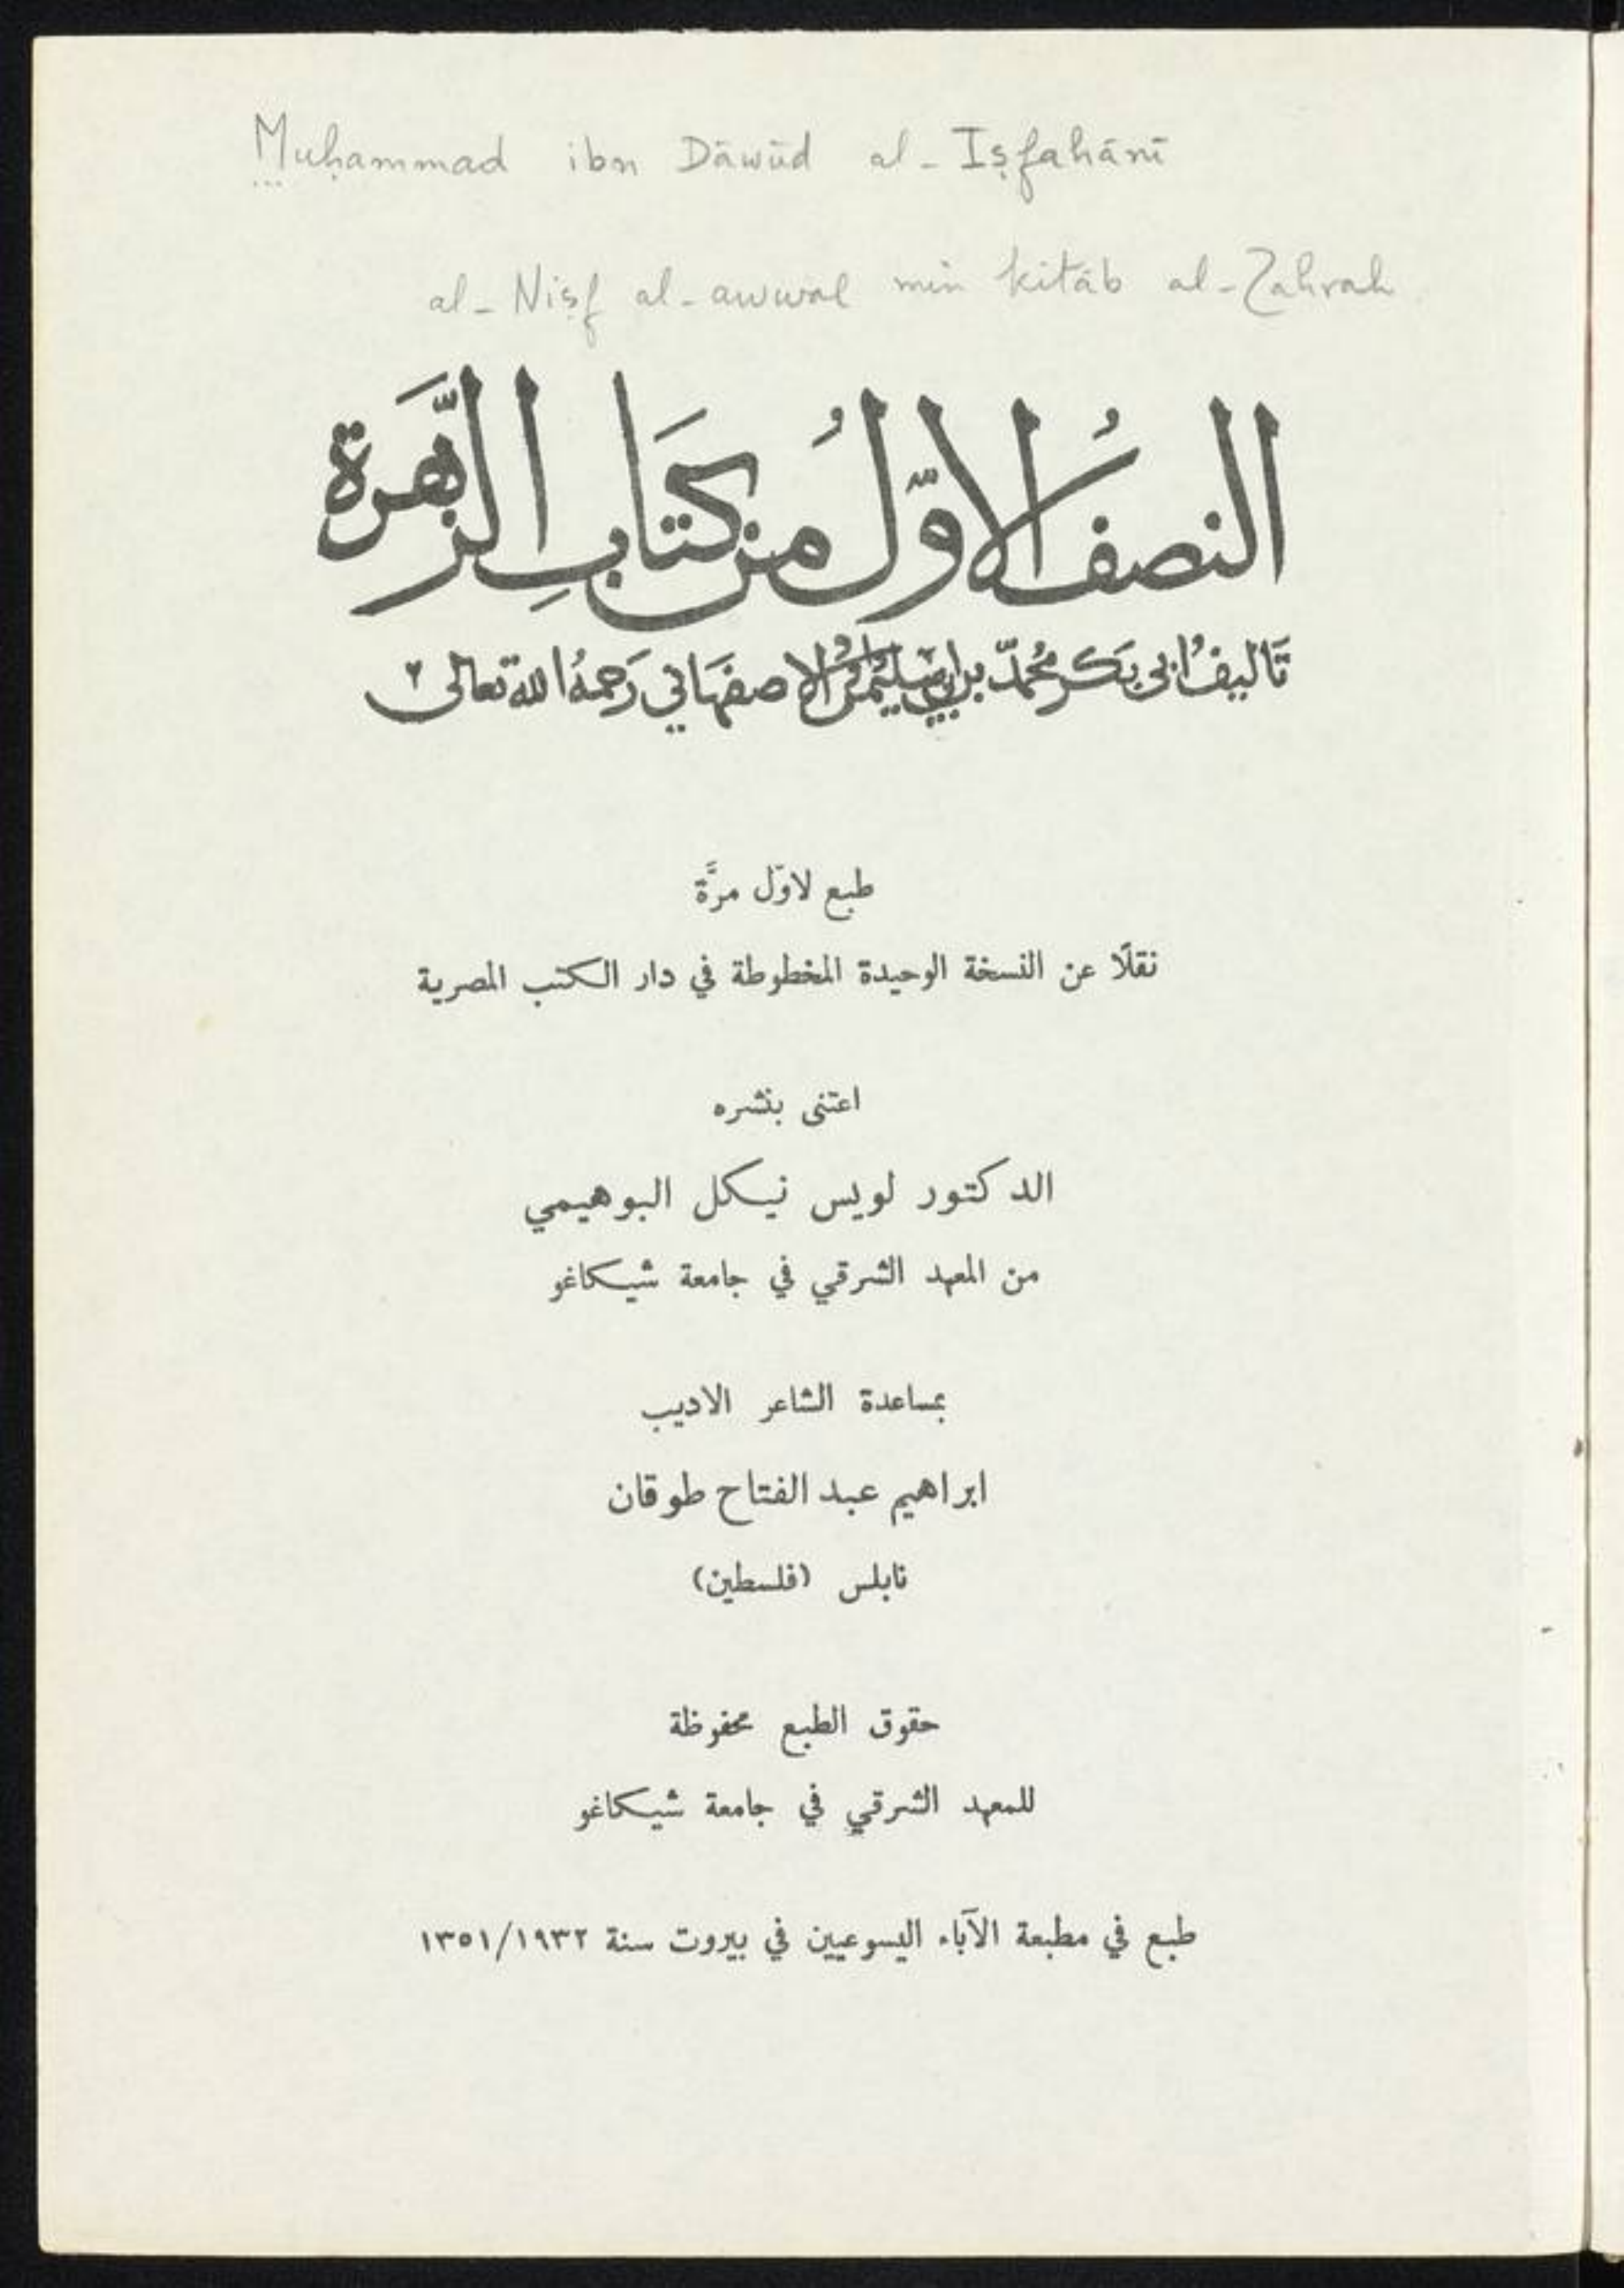 Muḥammad ibn Dāwūd al-Iṣfahānī
al-Niṣf al-awwal min kitāb al-Zahrah
النصفُ الاوّلُ من كتَابِ الزَّهَرة
تَاليفُ ابى بَكر مُحمّد بن ابى سليمٰن الاصفهَاني رَحمهُ الله تعالى
طبع لاوّل مرَّة
نقلًا عن النسخة الوحيدة المخطوطة في دار الكتب المصرية
اعتنى بنشره
الدكتور لويس نيكل البوهيمي
من المعهد الشرقي في جامعة شيكاغو
بمساعدة الشاعر الاديب
ابراهيم عبد الفتاح طوقان
نابلس (فلسطين)
حقوق الطبع محفوظة
للمعهد الشرقي في جامعة شيكاغو
طبع في مطبعة الآباء اليسوعيين في بيروت سنة ١٩٣٢/١٣٥١